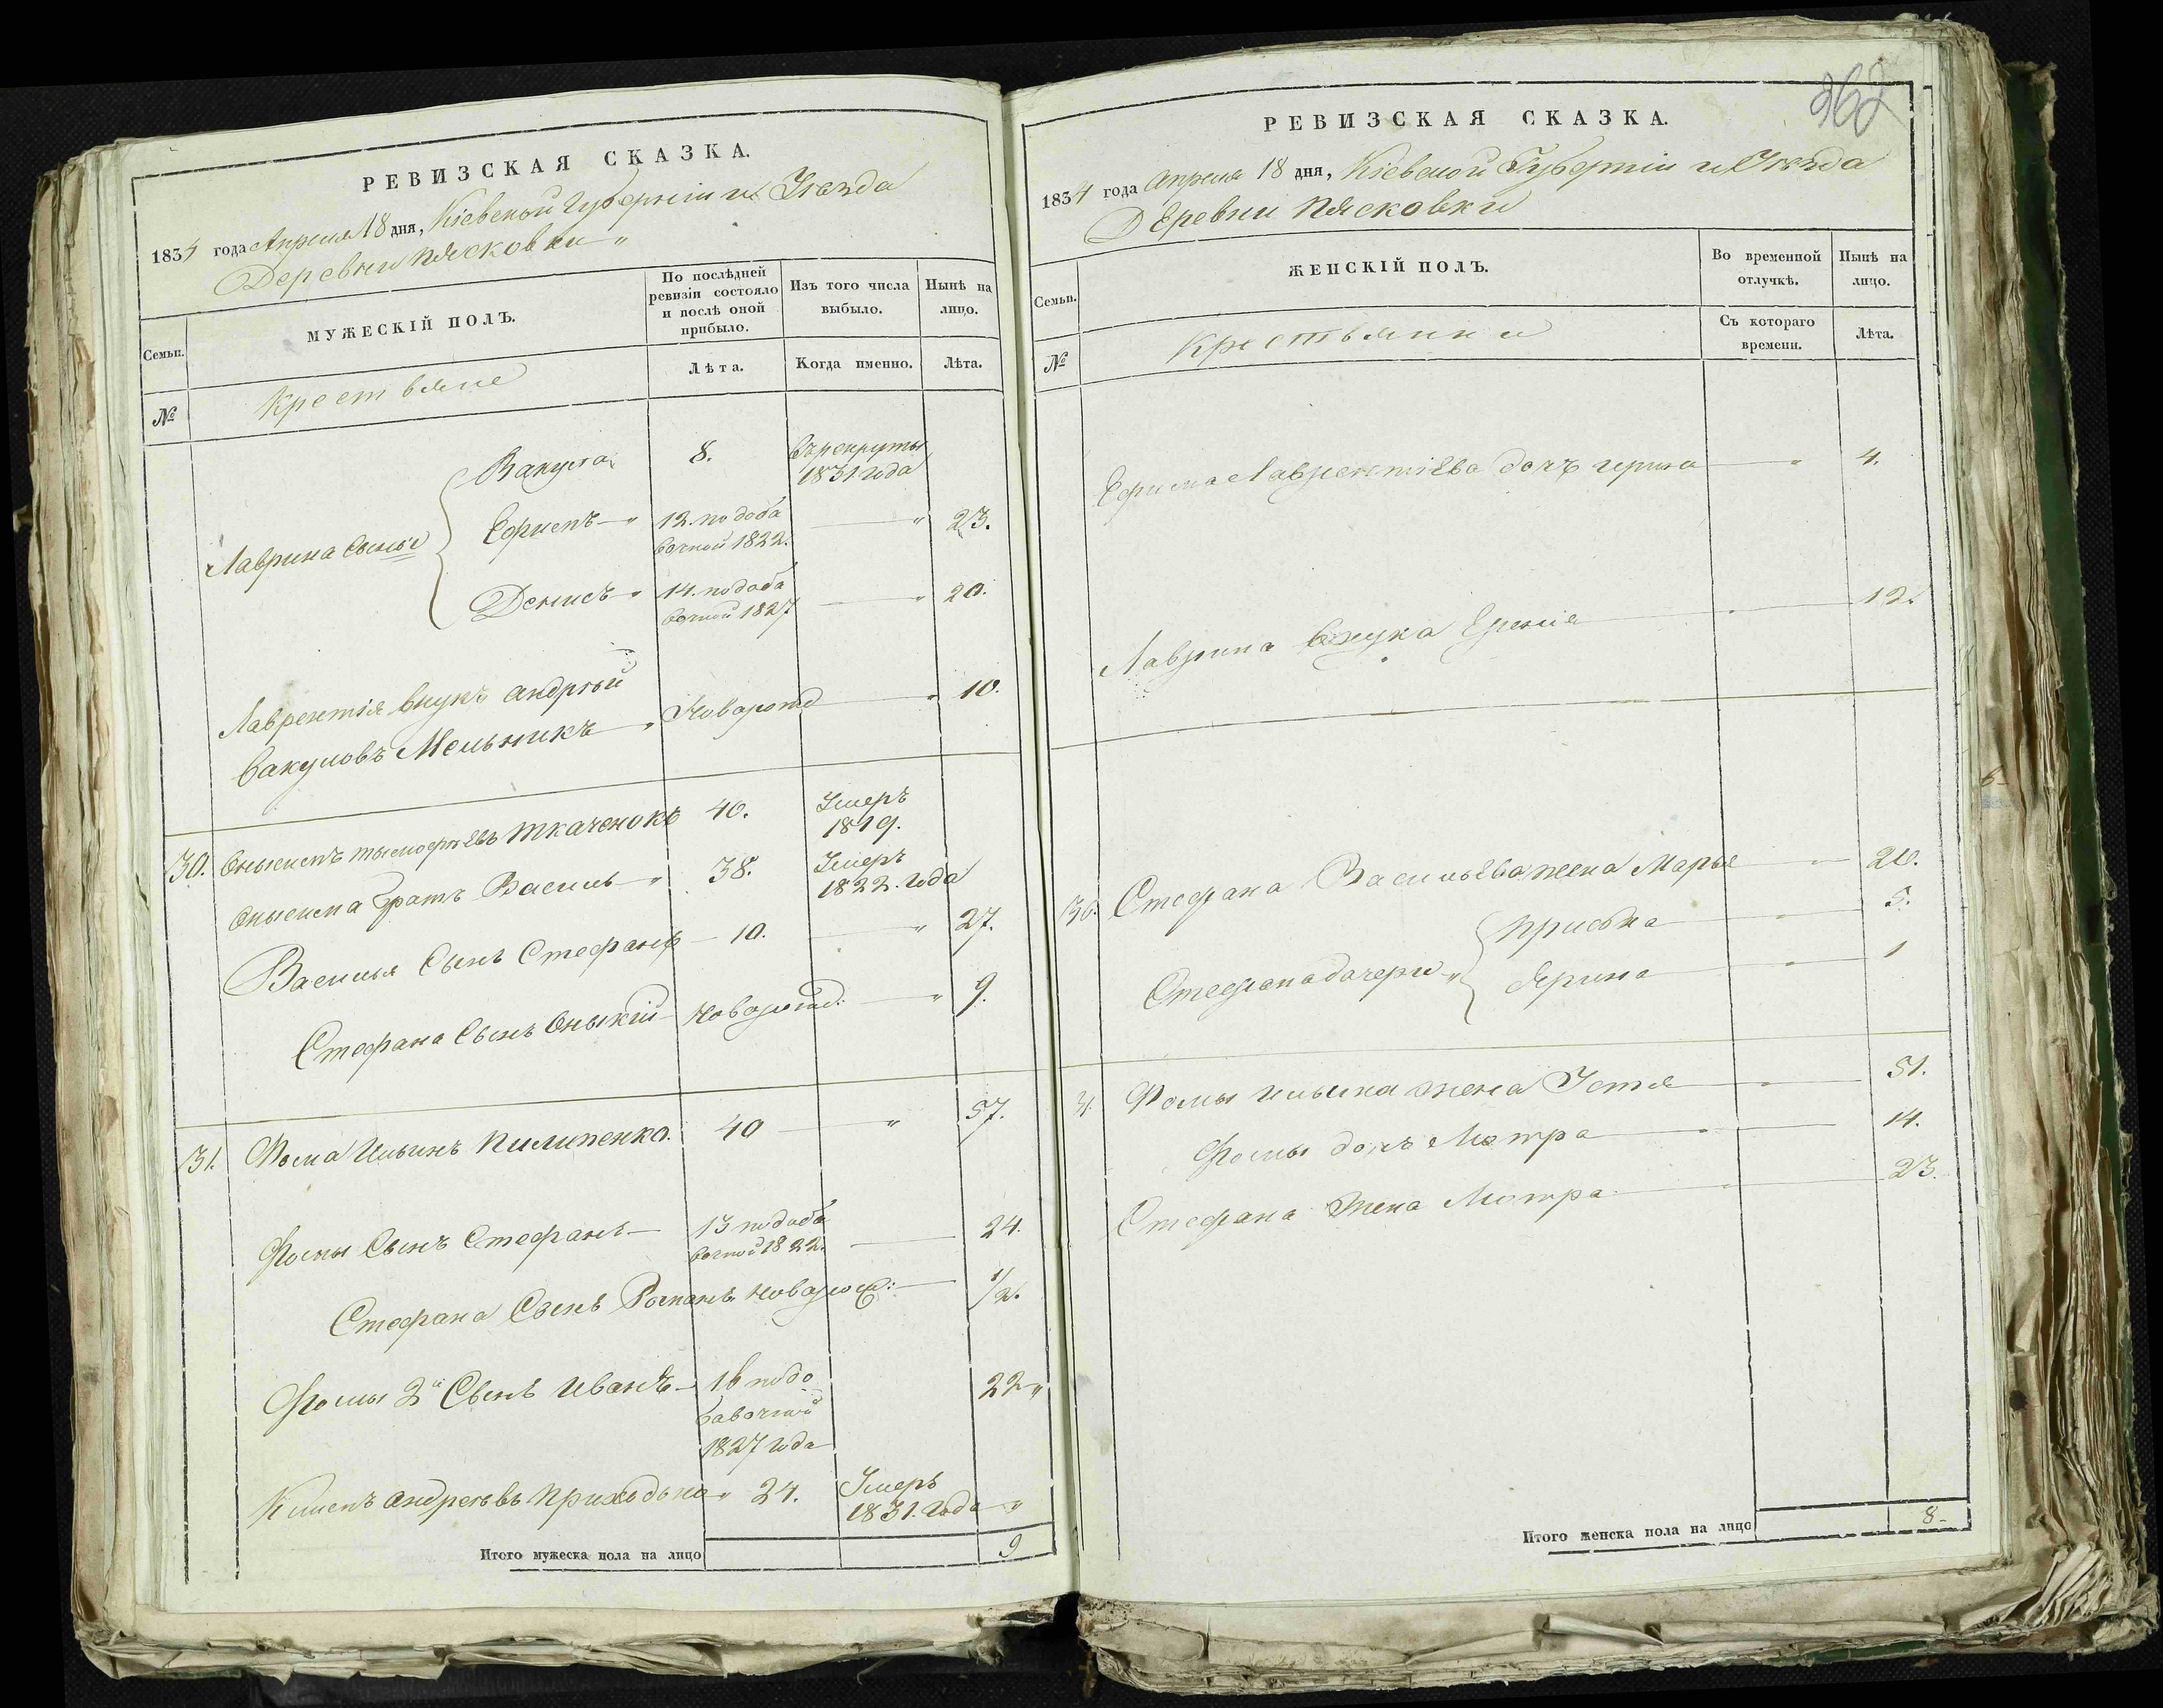 РЕВИЗСКАЯ СКАЗКА.
1834 года Апреля 18 дня, Кіевской Губерніи и Уезда
Деревни Пясковки
Семьи.
МУЖЕСКІЙ ПОЛЪ.
По послѣдней ревизіи состояло и послѣ оной прибыло.
Изъ того числа выбыло.
Нынѣ на лицо.
№
Крестьяне
Лѣта.
Когда именно.
Лѣта.
Вакула 8. въ рекруты 1831 года
Лаврина сыны
Ефимъ 12. по доба вочной 1822. 23.
Денисъ 14. по доба вочной 1827 20.
Лаврентія внукъ Андрей
Вакуловъ Мельникъ Новорожд 10.
30. Онысимъ Тымофѣевъ Ткаченокъ 40. Умеръ 1819.
Онысима братъ Василь 38. Умеръ 1822. года
Василья Сынъ Стефанъ 10. 27.
Стефана Сынъ Оныкій Новорожд: 9.
31. Фома Ильинъ Пилипенко. 40 57.
Фомы Сынъ Стефанъ 13 по доба вочной 1822. 24.
Стефана Сынъ Романъ новорож: 1/2.
Фомы 2й Сынъ Иванъ 16 по до бавочной 1827 года 22
Климъ Андреевъ Приходько 24. Умеръ 1831. года
Итого мужеска пола на лицо 9
362
РЕВИЗСКАЯ СКАЗКА.
1834 года Апреля 18 дня, Кіевской Губерніи и Уезда
Деревни Пясковки
Семьи.
ЖЕНСКІЙ ПОЛЪ.
Во временной отлучкѣ.
Нынѣ на лицо.
№
Крестьянки
Съ котораго времени.
Лѣта.
Ефима Лаврентіева дочъ 4.
Лаврина внука 12.
30. Стефана Васильева жена Марья 26.
Стефана дочери
Приська 3.
Ярина 1
31. Фомы Ильина жена Устя 51.
Фомы дочъ Мотра 14.
Стефана жена Мотра 23.
Итого женска пола на лицо 8